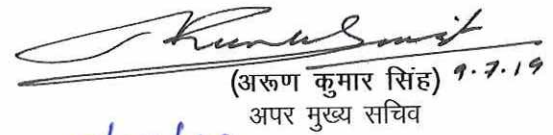 (अरूण कुमार सिंह) 9.7.19
अपर मुख्य सचिव